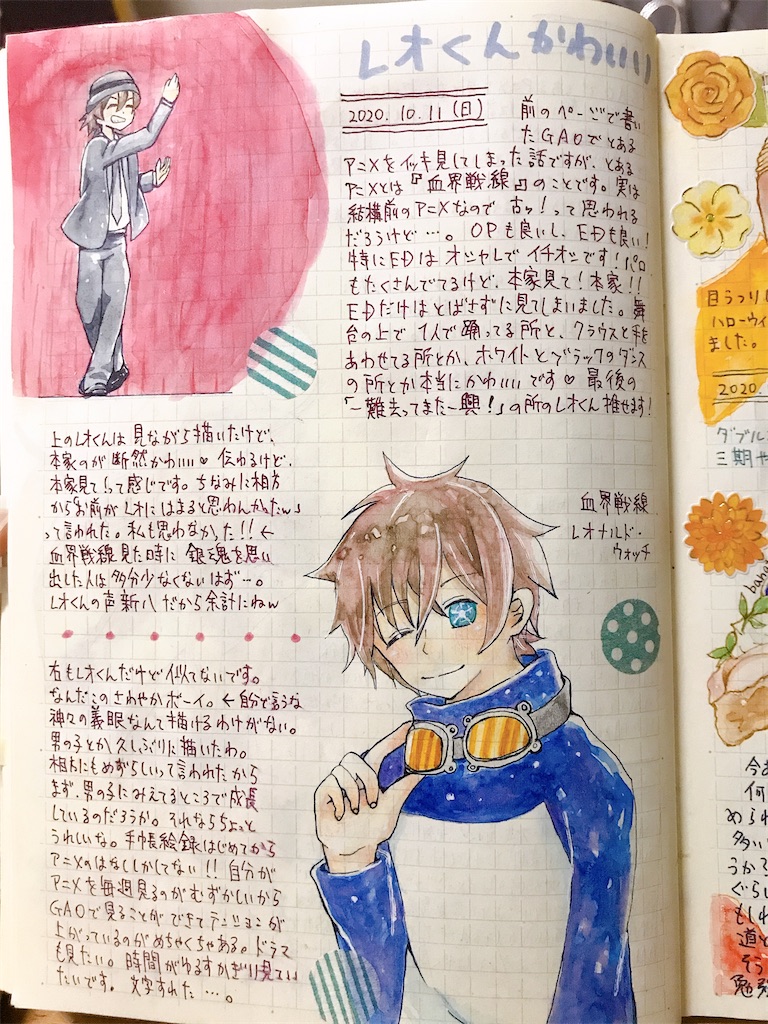 レオくんかわいい
2020.10.11(日)
前のページで書い
たGAOでとある
アニメをイッキ見してしまった話ですが、とある
アニメとは『血界戦線』のことです。実は
結構前のアニメなので 古ッ!って思われる
だろうけど…。OPも良いし、EDも良い!
特にEDは オシャレで イチオシです!パロ
もたくさんでてるけど、本家見て!本家!!
EDだけはとばさずに見てしまいました。舞
台の上で1人で踊ってる所と、クラウスと手を
あわせてる所とか、ホワイトとブラックのダンス
の所とか本当にかわいいです♡ 最後の
「一難去ってまた一興!」の所のレオくん推せます!
上のレオくんは見ながら描いたけど、
本家のが断然かわいい♥ 伝わるけど、
本家見て!って感じです。ちなみに相方
から「お前がレオにはまると思わんかったw」
って言われた。私も思わなかった!!←
血界戦線見た時に 銀魂を思い
出した人は多分少なくないはず…。
レオくんの声新八だから余計にねw
血界戦線
レオナルド・
ウォッチ
右もレオくんだけど似てないです。
なんだこのさわやかボーイ。←自分で言うな
神々の義眼なんて描けるわけがない。
男の子とか久しぶりに描いたわ。
相方にもめずらしいって言われたから
まず、男の子にみえてるところで成長
しているのだろうか。それならちょっと
うれしいな。手帳絵録はじめてから
アニメのはなししかしてない!!自分が
アニメを毎週見るのがむずかしいから
GAOで見ることができてテンションが
上がっているのがめちゃくちゃある。ドラマ
も見たい。時間がゆるすかぎり見てい
たいです。文字すれた…。
目うつりし
ハローウィ
ました。
2020
ダブル
三期や
今あ
何
められ
多い
うかる
ぐらい
もしれ
道と
そう
勉強